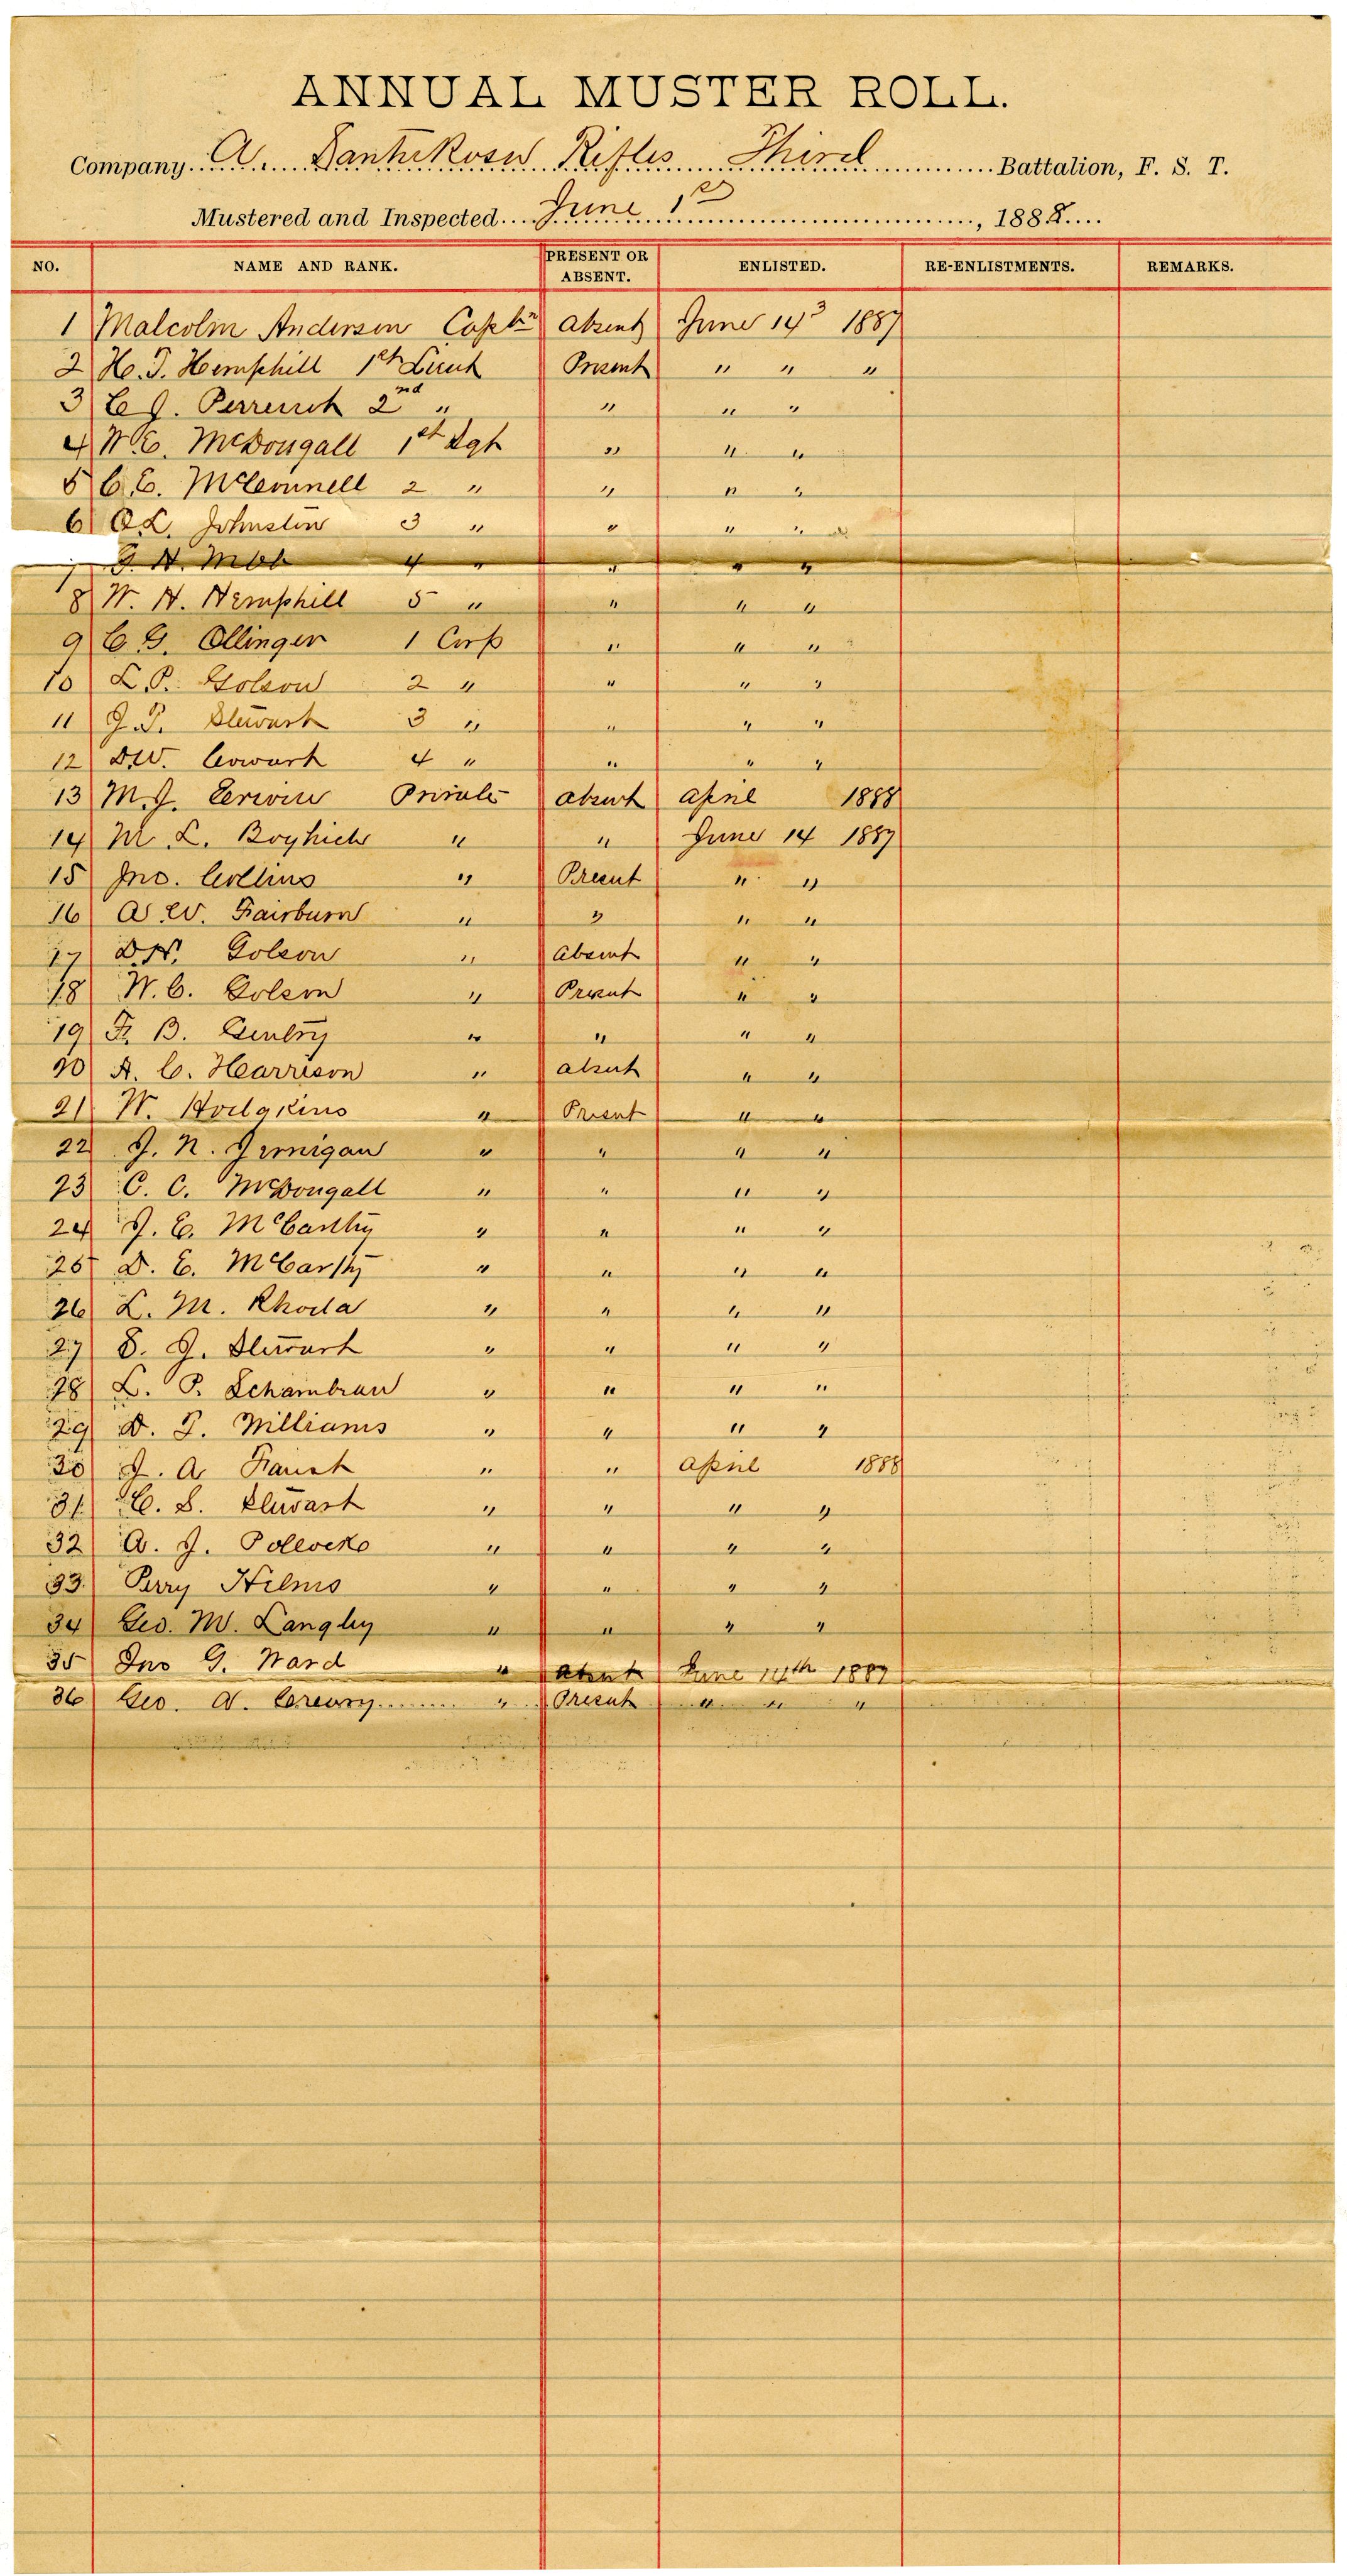 ANNUAL MUSTER ROLL.
Company A. Santa Rosa Rifles Third Battalion, F. S. T.
Mustered and Inspected June 1st, 1888
NO. NAME AND RANK. PRESENT OR ABSENT. ENLISTED. RE-ENLISTMENTS. REMARKS.
1 Malcolm Anderson Captn Absent June 14 1887
2 H. T. Hemphill 1st Lieut Present " " "
3 J. 2nd " " " "
4 W. E. McDougall 1st Sgt " " "
5 C. E. McConnell 2 " " " "
6 O. L. Johnston 3 " " " "
7 4 " " " "
8 W. H. Hemphill 5 " " " "
9 C. G. Ollinger 1 Corp " " "
10 L. P. Golson 2 " " " "
11 J. T. Stewart 3 " " " "
12 D. W. Cowart 4 " " " "
13 M. J. Private Absent April 1888
14 M. L. " " June 14 1887
15 Jno. Collins " Present " "
16 A. W. Fairburn " " " "
17 D. N. Golson " Absent " "
18 W. C. Golson " Present " "
19 F. B. Gentry " " " "
20 A. C. Harrison " Absent " "
21 W. Hodgkins " Present " "
22 J. N. Jernigan " " " "
23 C. C. McDougall " " " "
24 J. E. McCarthy " " " "
25 D. E. McCarthy " " " "
26 L. M. Rhoda " " " "
27 S. J. Stewart " " " "
28 L. P. Schambeau " " " "
29 D. T. Williams " " " "
30 J. A. Faust " " April 1888
31 C. S. Stewart " " " "
32 A. J. " " " "
33 Perry Helms " " " "
34 Geo. W. Langley " " " "
35 Jno G. Ward " Absent June 14th 1887
36 Geo. W. " Present " " "